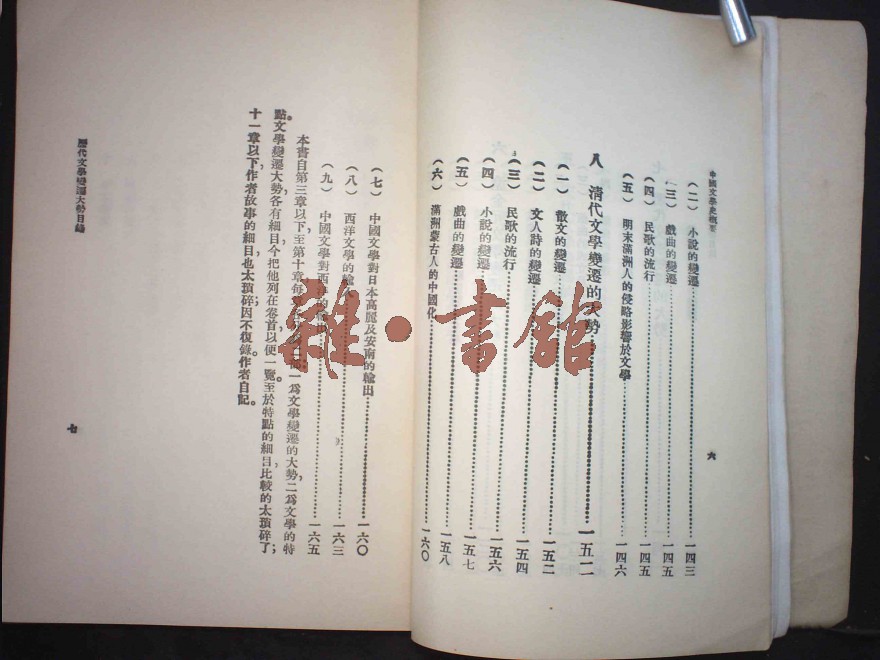 中國文學史概要
(二) 小說的變遷 一四三
(三) 戲曲的變遷 一四五
(四) 民歌的流行 一四五
(五) 明末滿洲人的侵略影響於文學 一四六
八 清代文學變遷的大勢 一五二
(一) 散文的變遷 一五二
(二) 文人詩的變遷 一五二
(三) 民歌的流行 一五四
(四) 小說的變遷 一五六
(五) 戲曲的變遷 一五七
(六) 滿洲蒙古人的中國化 一五八
一六〇
六
(七) 中國文學對日本高麗及安南的輸出 一六〇
(八) 西洋文學的輸入 一六三
(九) 中國文學對西洋的 一六五
本書自第三章以下,至第十章,每 一為文學變遷的大勢,二為文學的特
點。文學變遷大勢,各有細目,今把他列在卷首,以便一覽。至於特點的細目,比較的太瑣碎了;
十一章以下,作者故事的細目,也太瑣碎;因不復錄。作者自記。
歷代文學變遷大勢目錄
七
雜·書館